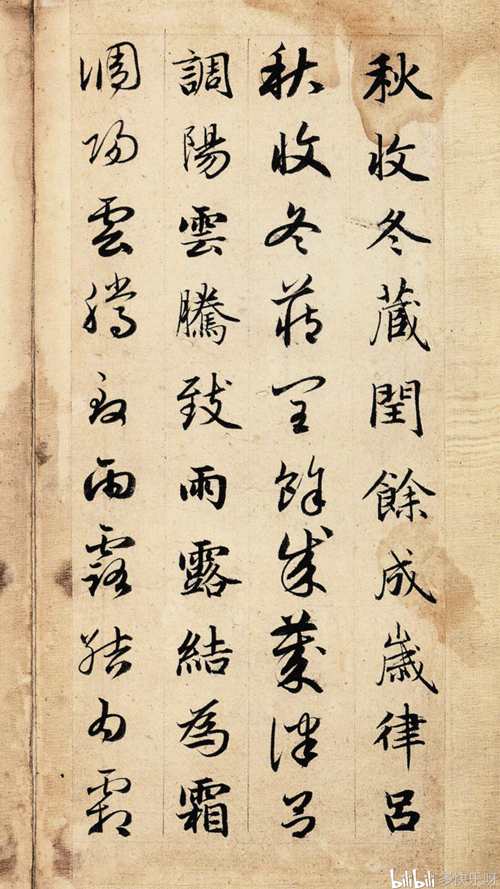 秋收冬蔵閏餘成歲律呂
秋收冬蔵閏餘成歲律呂
調陽雲騰致雨露結為霜
調陽雲騰致雨露結為霜
bilibili